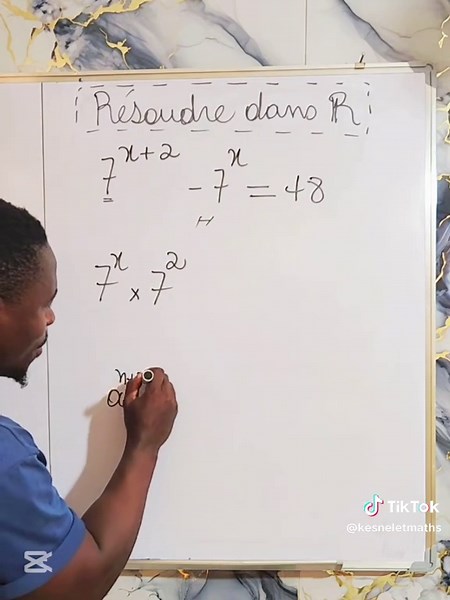 Résoudre dans R
7^{x+2} - 7^x = 48
7^x × 7^2
TikTok
@kesneletmaths